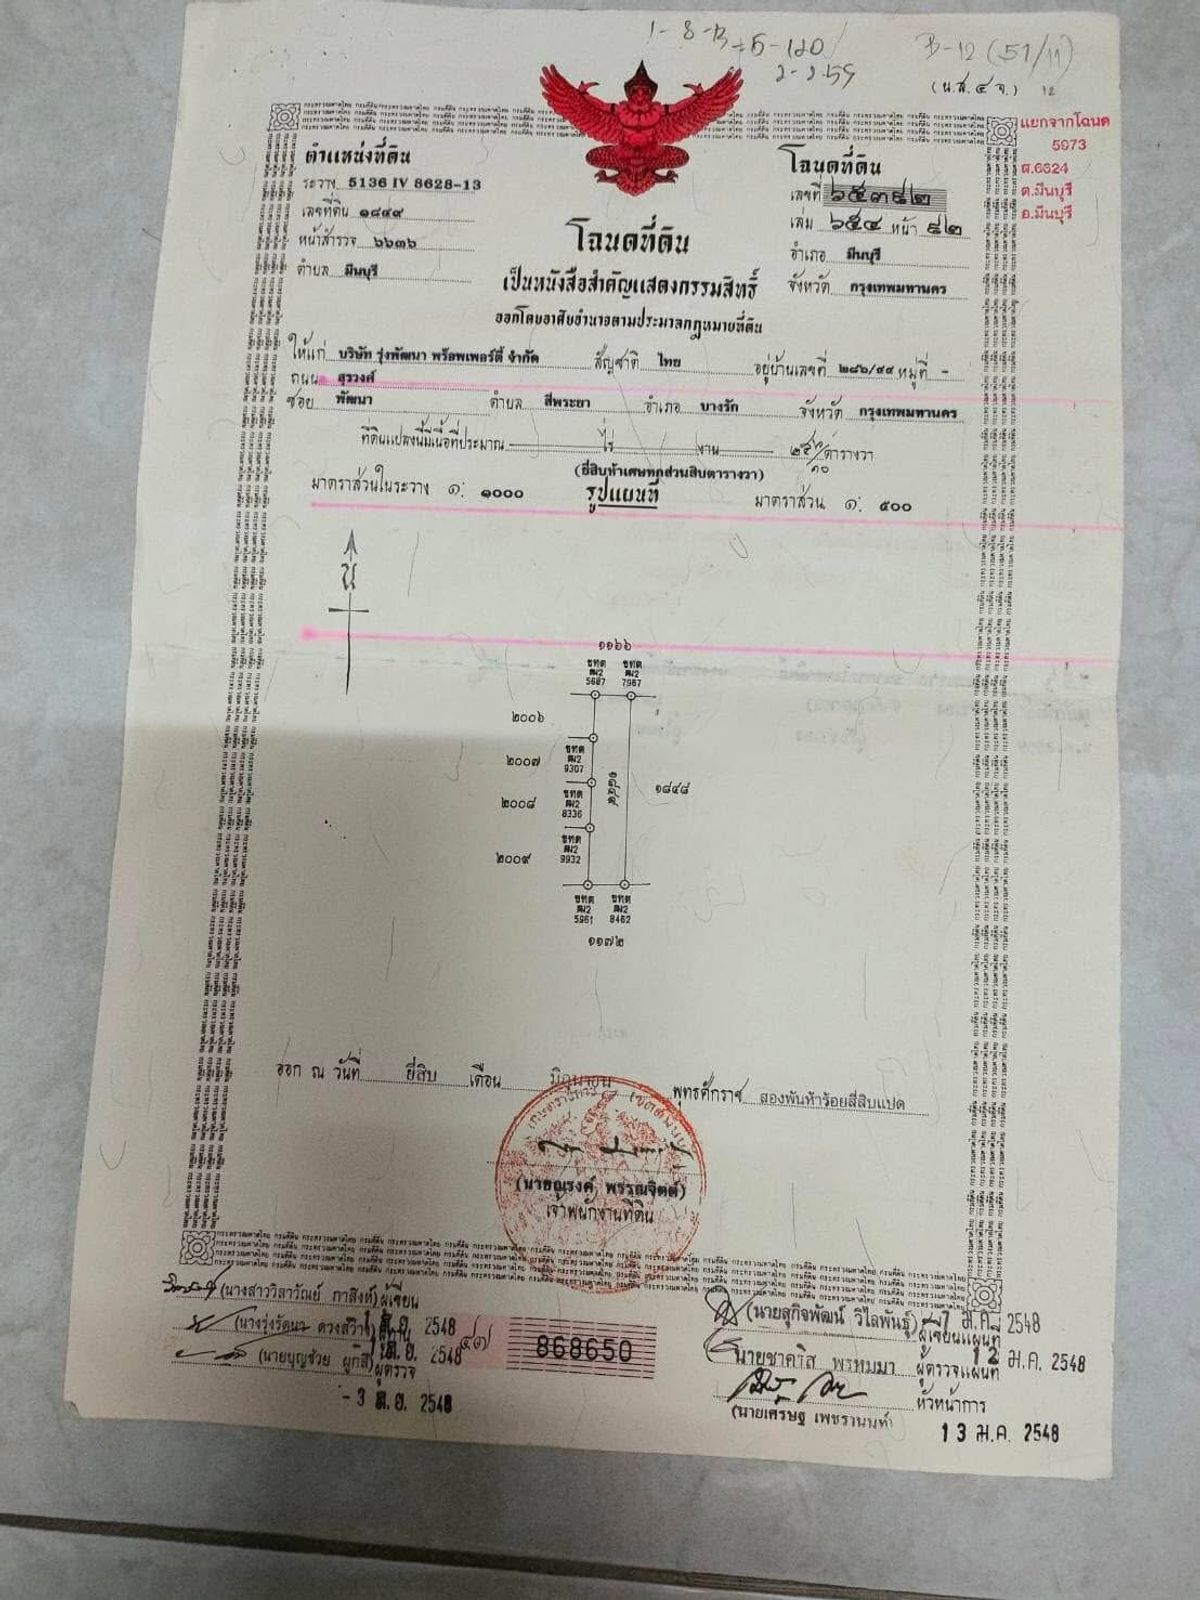 (น.ส.๔ จ.)
แยกจากโฉนด
5973
ต.มีนบุรี
อ.มีนบุรี
ตำแหน่งที่ดิน
ระวาง 5136 IV 8628-13
เลขที่ดิน ๑๘๔๙
หน้าสำรวจ ๖๖๓๖
ตำบล มีนบุรี
โฉนดที่ดิน
เลขที่ ๖๕๓๙๒
เล่ม ๖๕๔ หน้า ๙๒
อำเภอ มีนบุรี
จังหวัด กรุงเทพมหานคร
โฉนดที่ดิน
เป็นหนังสือสำคัญแสดงกรรมสิทธิ์
ออกโดยอาศัยอำนาจตามประมวลกฎหมายที่ดิน
ให้แก่ บริษัท รุ่งพัฒนา พร็อพเพอร์ตี้ จำกัด สัญชาติ ไทย อยู่บ้านเลขที่ ๒๘๖/๙๙ หมู่ที่ -
ถนน สุรวงศ์
ซอย พัฒนา ตำบล สี่พระยา อำเภอ บางรัก จังหวัด กรุงเทพมหานคร
ที่ดินแปลงนี้มีเนื้อที่ประมาณ ไร่ งาน ตารางวา
(ยี่สิบห้าเศษหกส่วนสิบตารางวา)
มาตราส่วนในระวาง ๑: ๑๐๐๐ รูปแผนที่ มาตราส่วน ๑: ๕๐๐
น
๑๑๖๖
5687 7987
๒๐๐๖
๒๐๐๗
9307
๑๘๔๙
๑๘๔๘
๒๐๐๘
8336
๒๐๐๙
9932
5961 8462
๑๑๗๒
ออก ณ วันที่ ยี่สิบ เดือน มิถุนายน พุทธศักราช สองพันห้าร้อยสี่สิบแปด
(นายณรงค์ พรรณจิตต์)
เจ้าพนักงานที่ดิน
(นางสาววิลาวัณย์ กาสิงห์) ผู้เขียน
2548
2548
(นายบุญช่วย ผู้ตรวจ
2548
868650
(นายสุกิจพัฒน์ วิไลพันธุ์) ผู้เขียนแผนที่
ม.ค. 2548
นายชาคริส พรหมมา ผู้ตรวจแผนที่
12 ม.ค. 2548
หัวหน้าการ
(นายเศรษฐ เพชรานนท์)
13 ม.ค. 2548